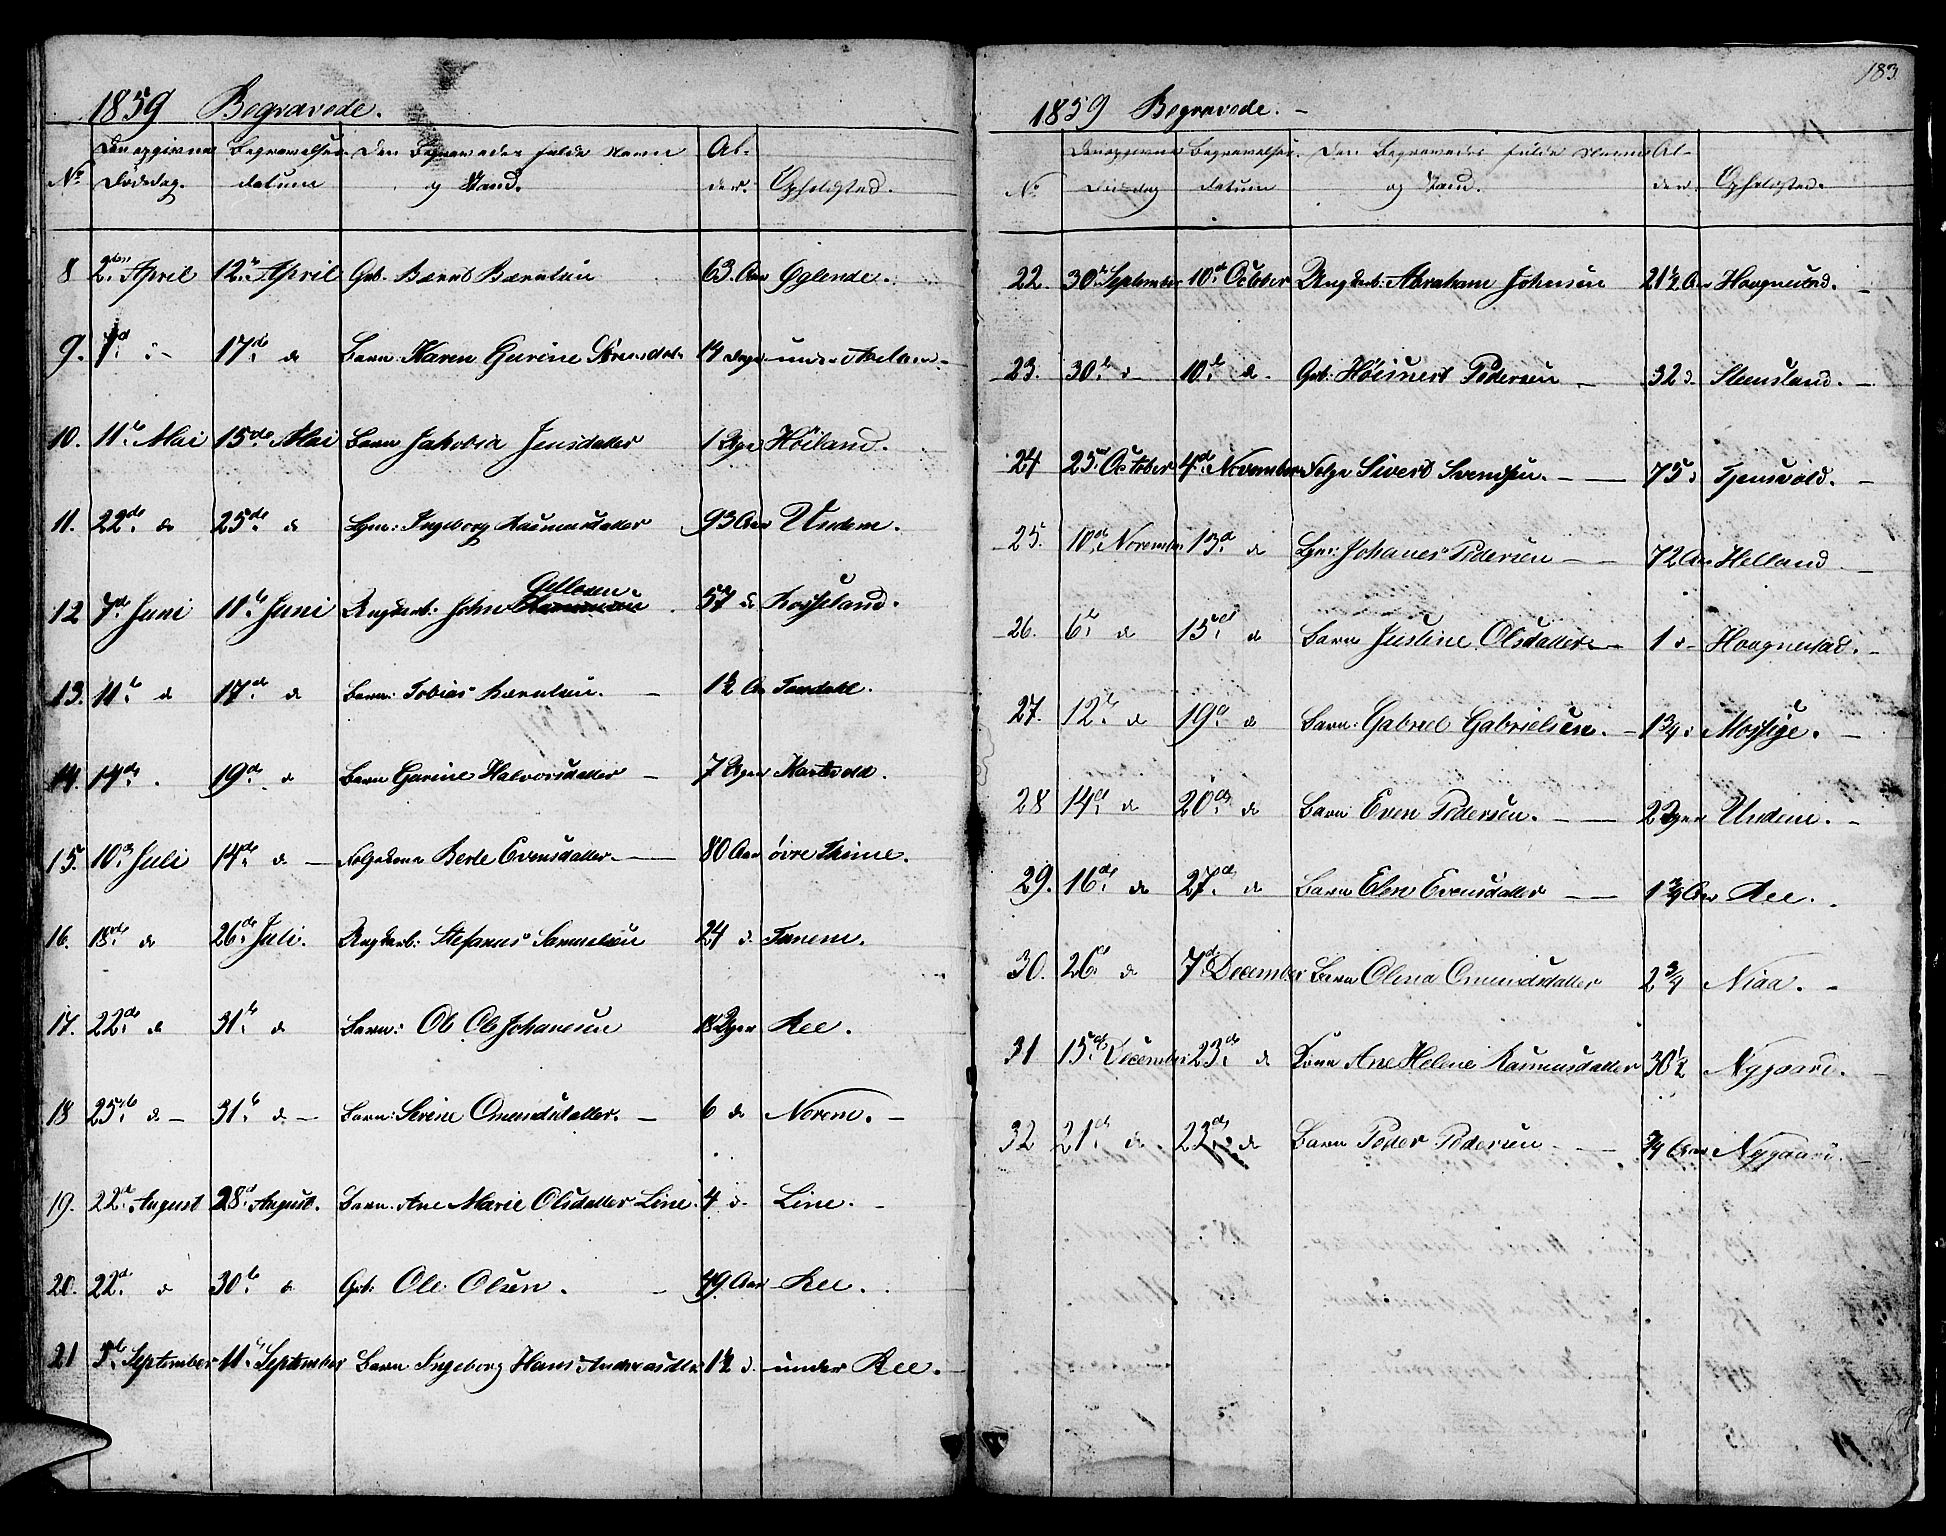 1859 Begravede.
No Den opgivne Dödsdag. Begravelses datum Den Begravedes fulde Navn og Stand. Alder. Opholdsted.
8 2den April 12te April Gbr. Bernt Berntsen 63 Aar Öglende.
9. 7d d 17de do Barn: Karen Gurine 14 Dage under
10. 11te Mai 15de Mai Barn Jakobia Jensdatter 1 Uge Höiland.
11. 22de do 25de do Lgm: Ingeborg Rasmusdatter 93 Aar Undem.
12 7de Juni 11te Juni Ungkarl: John 57 do Rosseland.
13. 11te do 17de do Barn: Tobias Berntsen. 1½ Aar Taardahl.
14. 14de . 19de do Barn Gurine Halvorsdatter 7 Uger
15. 10de Juli 14de do Folgekone Berte Evensdatter. 80 Aar övre Thime.
16. 18de do 26de Juli. Ungkarl: Stefanus Samuelsen 24 d. Tunem.
17. 22de do 31te do Barn: Ole Ole Johanesen 18 Uger Ree.
18 25te do 31te do Barn: Serine Omundsdatter. 6 do Norem.
19. 22de August 28de August. Barn: Ane Marie Olsdatter Line. 4 d. Line.
20. 22d d 30te d Gbr. Ole Olsen. 49 Aar Ree.
21 5te September 11te September Barn Ingeborg Hans Andreasdtr 1½ d. under Ree.
183
1859 Begravede.
No Den opgivne Dödsdag Begravelses datum Den Begravedes fulde Navn og Stand. Alder. Opholdsted.
22. 30te September 10de October Ungkarl: Abraham Johnsen 21½ Aar Haagnestad.
23. 30te d 10de do. Gbr: Höinert Pedersen 32 d. Steensland.
24 25de October 4de November Folge Sivert Svendsen. 75 d Tjensvold.
25. 10de November 13d do Lgm: Johanes Pedersen 72 Aar Helland
26. 6te do 15de do Barn Justine Olsdatter 1 d Haagnestad.
27. 12te do 19de do Barn: Gabriel Gabrielsen. 1¾ d Mossige.
28 14de do 20de do Barn Even Pedersen. 2 Uger Undem.
29. 16de do 27de do Barn Elen Evensdatter 1¾ Aar Ree.
30. 26de do 7de December Barn Olena Omundsdatter 2¾ Niaa.
31 15de December 23de do Kone Ane Helene Rasmusdatter 30½ Nygaard.
32 21de do 23de do Barn Peder Pedersen ¾ Aar Nygaard.